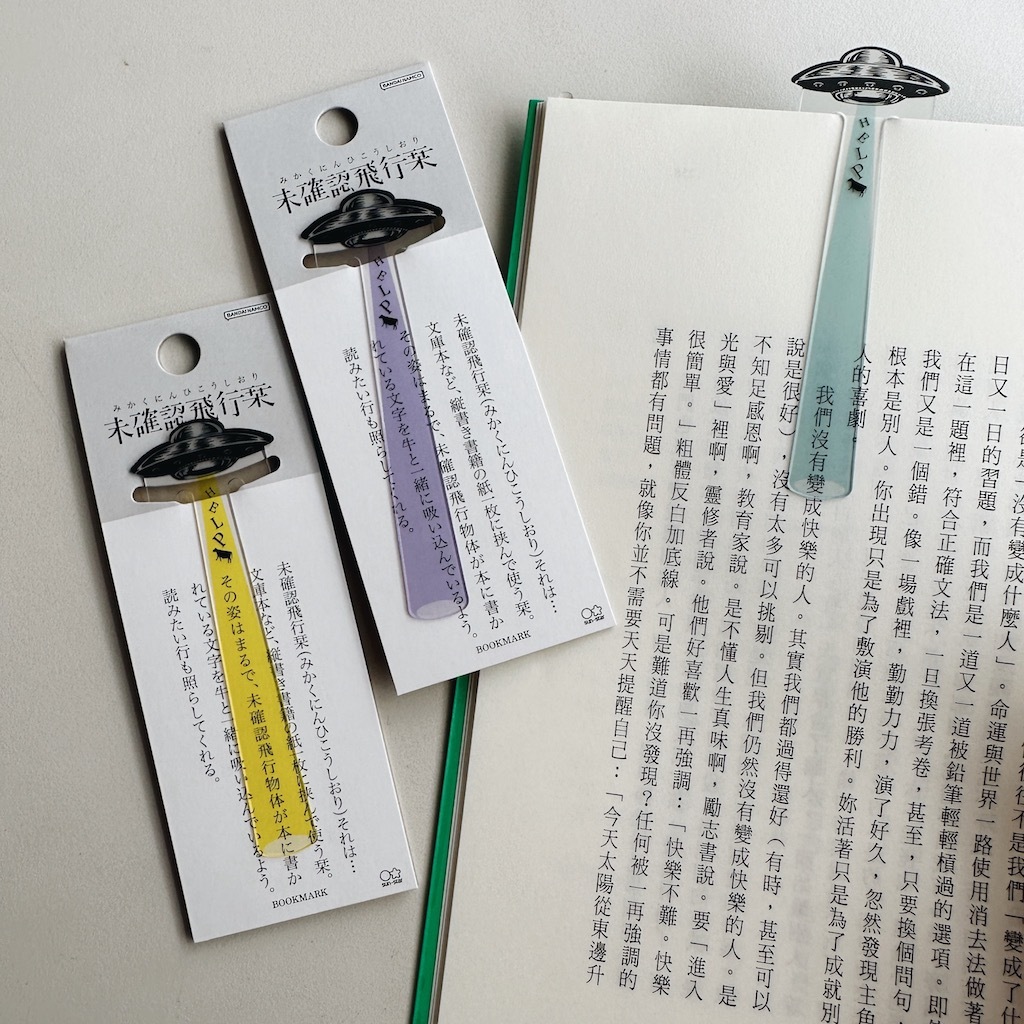 BANDAI NAMCO
みかくにんひこうしおり
未確認飛行栞
HELP
未確認飛行栞(みかくにんひこうしおり)それは…
文庫本など、縦書き書籍の紙一枚に挟んで使う栞。
その姿はまるで、未確認飛行物体が本に書か
れている文字を牛と一緒に吸い込んでいるよう。
読みたい行も照らしてくれる。
BOOKMARK
sun-star
BANDAI NAMCO
みかくにんひこうしおり
未確認飛行栞
HELP
未確認飛行栞(みかくにんひこうしおり)それは…
文庫本など、縦書き書籍の紙一枚に挟んで使う栞。
その姿はまるで、未確認飛行物体が本に書か
れている文字を牛と一緒に吸い込んでいるよう。
読みたい行も照らしてくれる。
BOOKMARK
sun-star
HELP
往往不是我們「變成了什
是「沒有變成什麼人」。命運與世界一路使用消去法做著
日又一日的習題，而我們是一道又一道被鉛筆輕輕槓過的選項。即
在這一題裡，符合正確文法，一日換張考卷，甚至，只要換個問句，
我們又是一個錯。像一場戲裡，勤勤力力，演了好久，忽然發現主角
根本是別人。你出現只是為了敷演他的勝利。妳活著只是為了成就別
人的喜劇。
我們沒有變成快樂的人。其實我們都過得還好（有時，甚至可以
說是很好），沒有太多可以挑剔。但我們仍然沒有變成快樂的人。是
不知足感恩啊，教育家說。是不懂人生真味啊，勵志書說。要「進入
光與愛」裡啊，靈修者說。他們好喜歡一再強調：「快樂不難。快樂
很簡單。」粗體反白加底線。可是難道你沒發現？任何被一再強調的
事情都有問題，就像你並不需要天天提醒自己：「今天太陽從東邊升